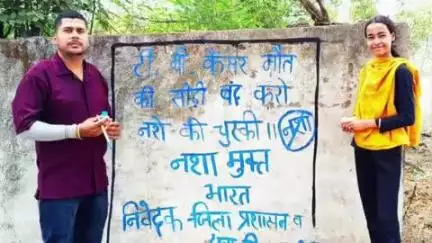 टी बी कैंसर मौत
की सीढ़ी बंद करो
नशे की चुस्की ॥ नशा
नशा मुक्त
भारत
निवेदक जिला प्रशासन व